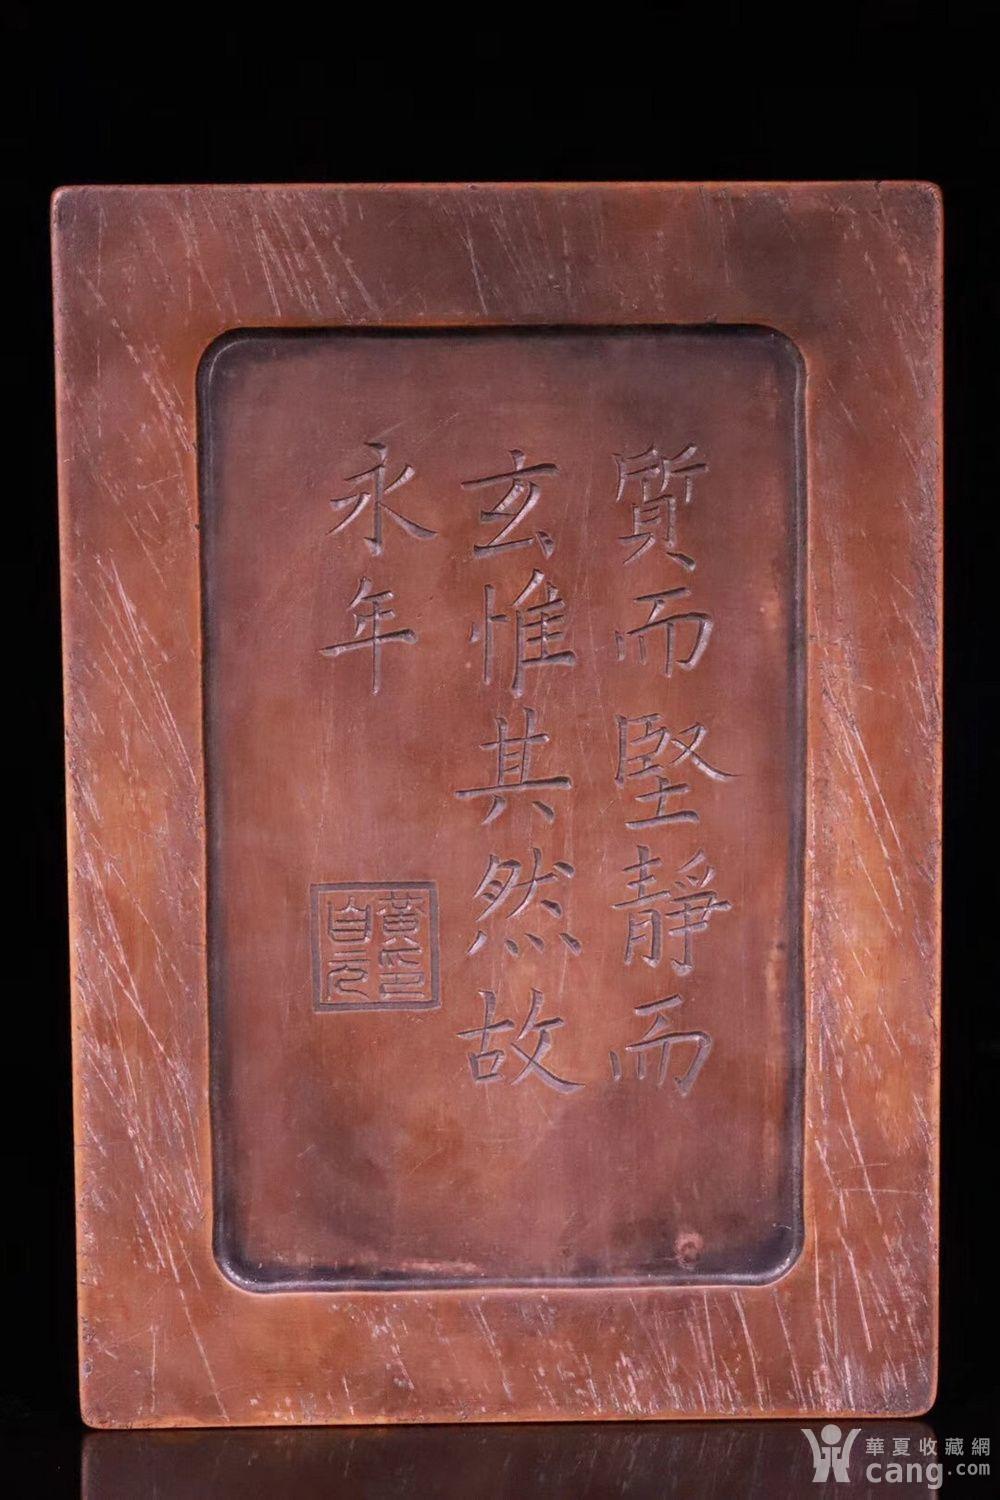 質而堅靜而
玄惟其然故
永年
黃印
自元
華夏收藏網
cang.com